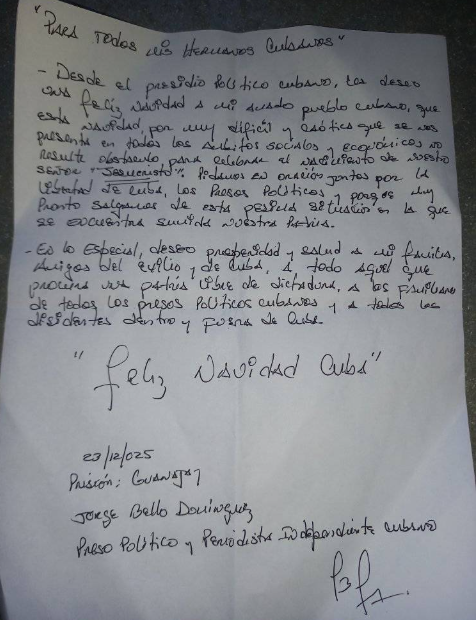 "Para Todos mis Hermanos Cubanos"
- Desde el presidio Político cubano, les deseo
una feliz Navidad a mi amado pueblo cubano, que
esta Navidad, por muy difícil y caótica que se nos
presenta en todos los ámbitos sociales y económicos no
resulte obstáculo, para celebrar el nacimiento de nuestro
señor "Jesucristo". Pidamos en oración juntos por la
libertad de Cuba, los Presos Políticos y porque muy
Pronto salgamos de esta penosa situación en la que
se encuentra sumida nuestra Patria.
- En lo Especial, deseo prosperidad y salud a mi familia,
Amigos del exilio y de Cuba, a todo aquel que
procura una patria libre de dictadura, a los familiares
de todos los presos políticos cubanos y a todos los
disidentes dentro y fuera de Cuba.
"Feliz Navidad Cuba"
23/12/025
Prisión: Guanajay
Jorge Bello Domínguez
Preso Político y Periodista Independiente cubano